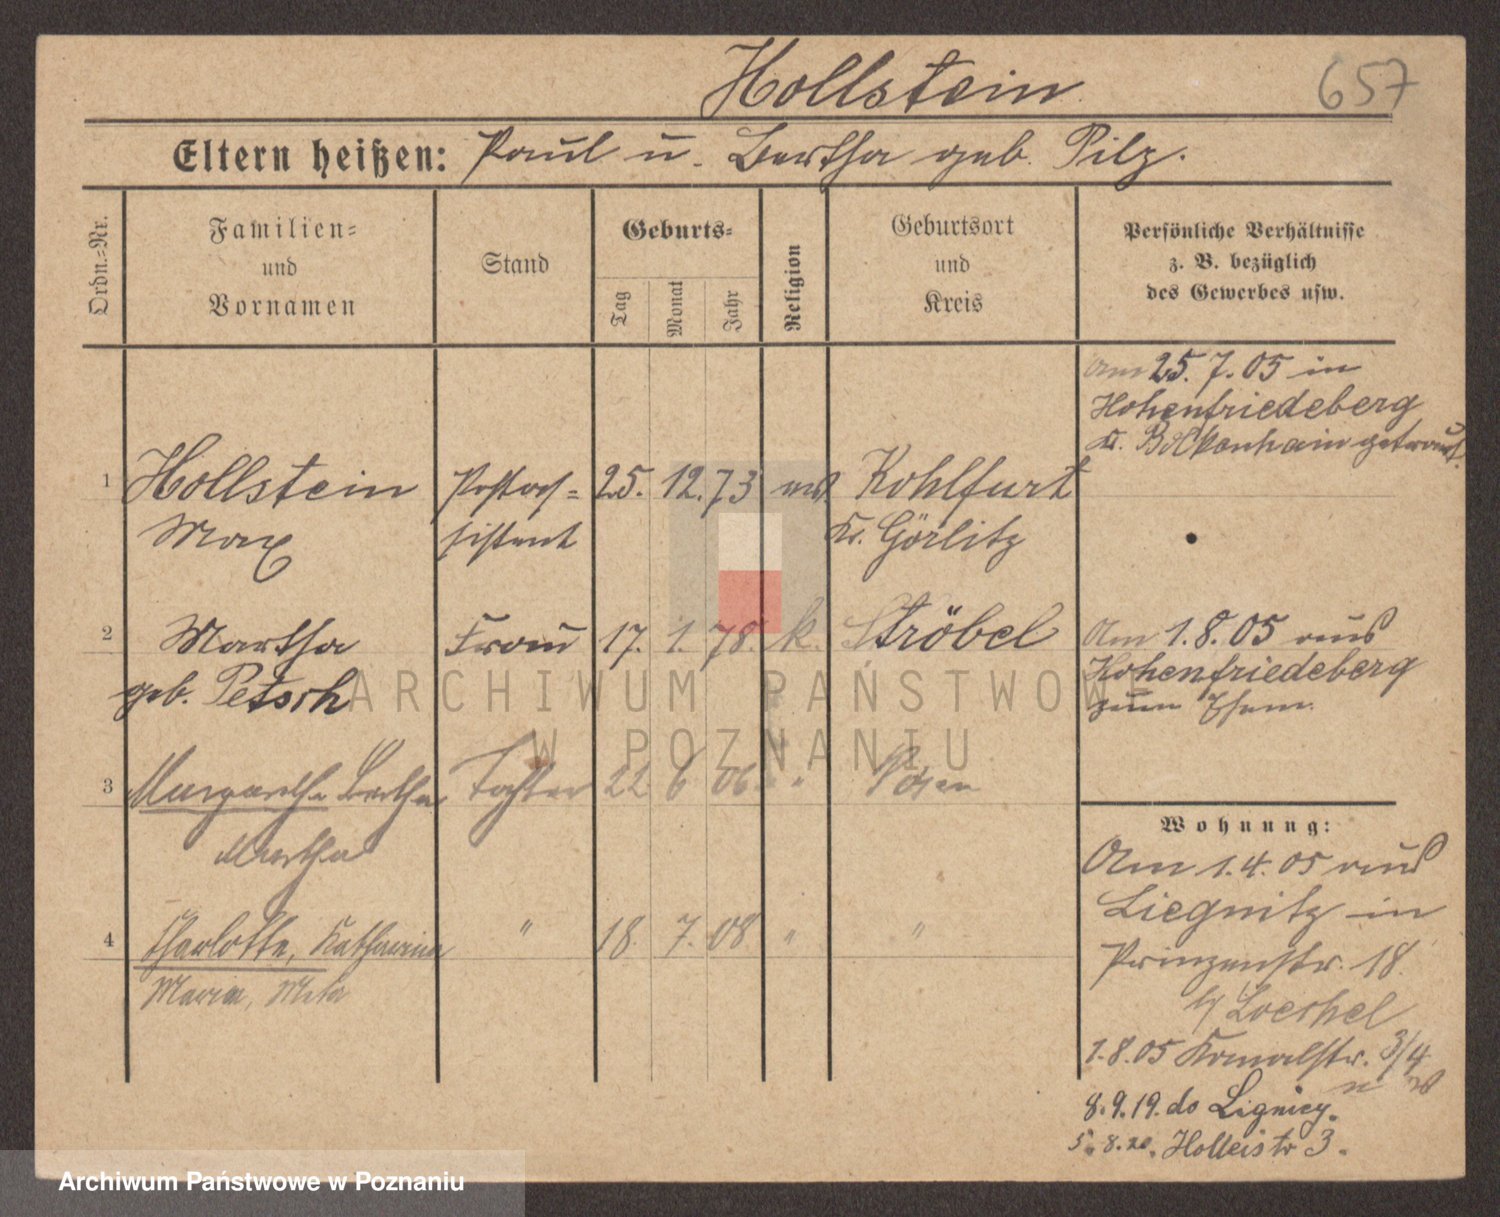 Hollstein
657
Eltern heißen: Paul u. Bertha geb. Pilz.
Ordn.-Nr.
Familien-
und
Vornamen
Stand
Geburts-
Tag
Monat
Jahr
Religion
Geburtsort
und
Kreis
Persönliche Verhältnisse
z. B. bezüglich
des Gewerbes usw.
Am 25. 7. 05 in
Hohenfriedeberg
Kr. Bolkenhain getraut.
1 Hollstein Postas- 25. 12. 73 Kohlfurt
Max sistent Kr. Görlitz
2 Martha Frau 17. 1. 78. k. Ströbel
geb. Petsch
Am 1. 8. 05 aus
Hohenfriedeberg
zum Ehem.
3 Margarethe Bertha Tochter 22 6 06 " Posen
Martha
4 Charlotte, Katharina " 18. 7. 08 " "
Maria, Meta
Wohnung:
Am 1. 4. 05 aus
Liegnitz in
Prinzenstr. 18.
b/ Loeschel
1. 8. 05 Kanalstr. 3/4
8. 9. 19. do Lignicy.
5. 8. 20. Holleistr 3.
ARCHIWUM PAŃSTWOW
W POZNANIU
Archiwum Państwowe w Poznaniu